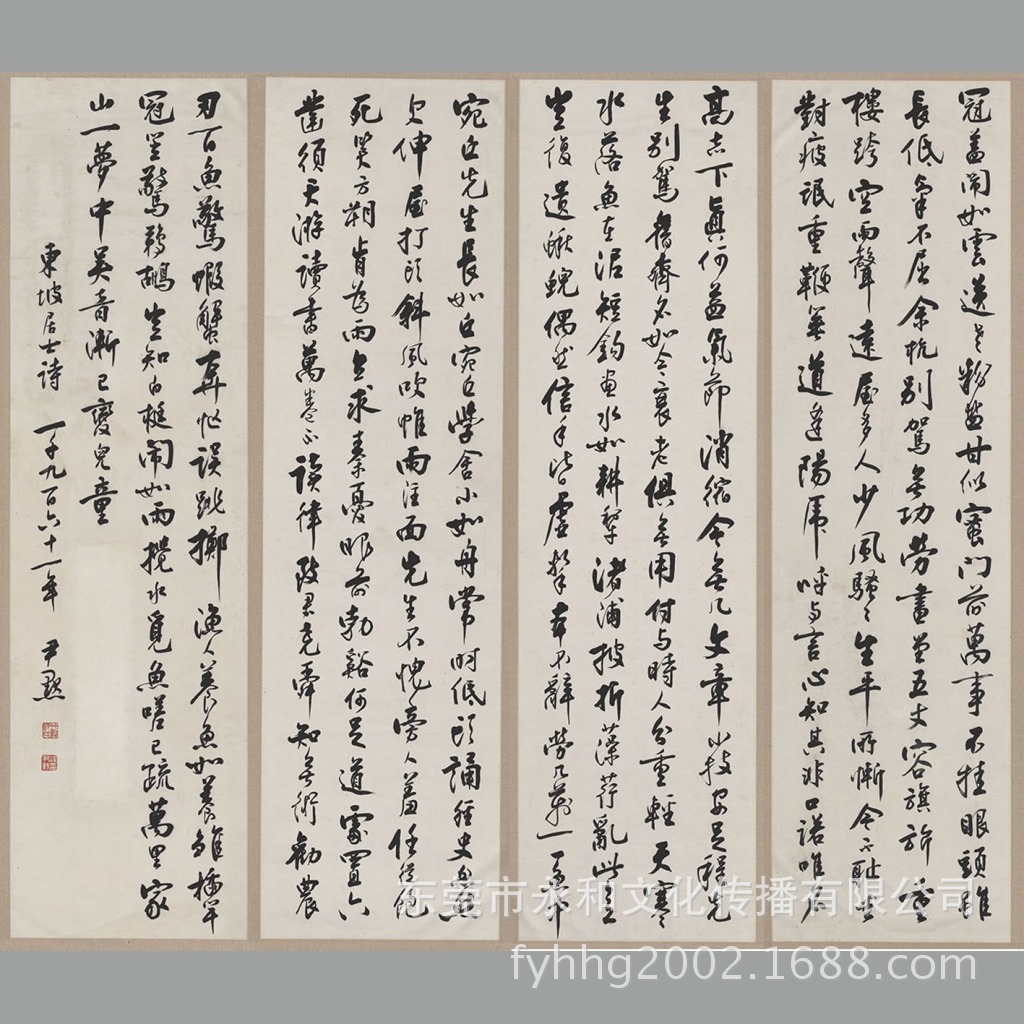 冠蓋鬧如雲送老虀鹽甘似蜜門前萬事不挂眼頭雖
長低氣不屈余杭別駕無功勞畫堂五丈容旗旄重
樓跨空雨聲遠屋多人少風騷騷生平所慚今不恥坐
對疲氓重鞭箠道逢陽虎呼與言心知其非口諾唯居
高志下真何益氣節消縮今無幾文章小技安足程先
生別駕舊齊名如今衰老俱無用付與時人分重輕天寒
水落魚在泥短鉤畫水如耕犁渚蒲披折藻荇亂此意
豈復遺鰍鯢偶然信手皆虛擊本不辭勞幾萬一一魚中
宛丘先生長如丘宛丘學舍小如舟常時低頭誦經史忽然
欠伸屋打頭斜風吹帷雨注面先生不愧旁人羞任從飽
死笑方朔肯為雨立求秦優眼前勃谿何足道處置六
鑿須天游讀書萬卷不讀律致君堯舜知無術勸農
刃百魚驚蝦蟹奔忙誤跳擲漁人養魚如養雛插竿
冠笠驚鵜鶘豈知白梃鬧如雨攪水覓魚嗟已疏萬里家
山一夢中吳音漸已變兒童
東坡居士詩 一千九百六十一年 尹默
东莞市永和文化传播有限公司
fyhhg2002.1688.com